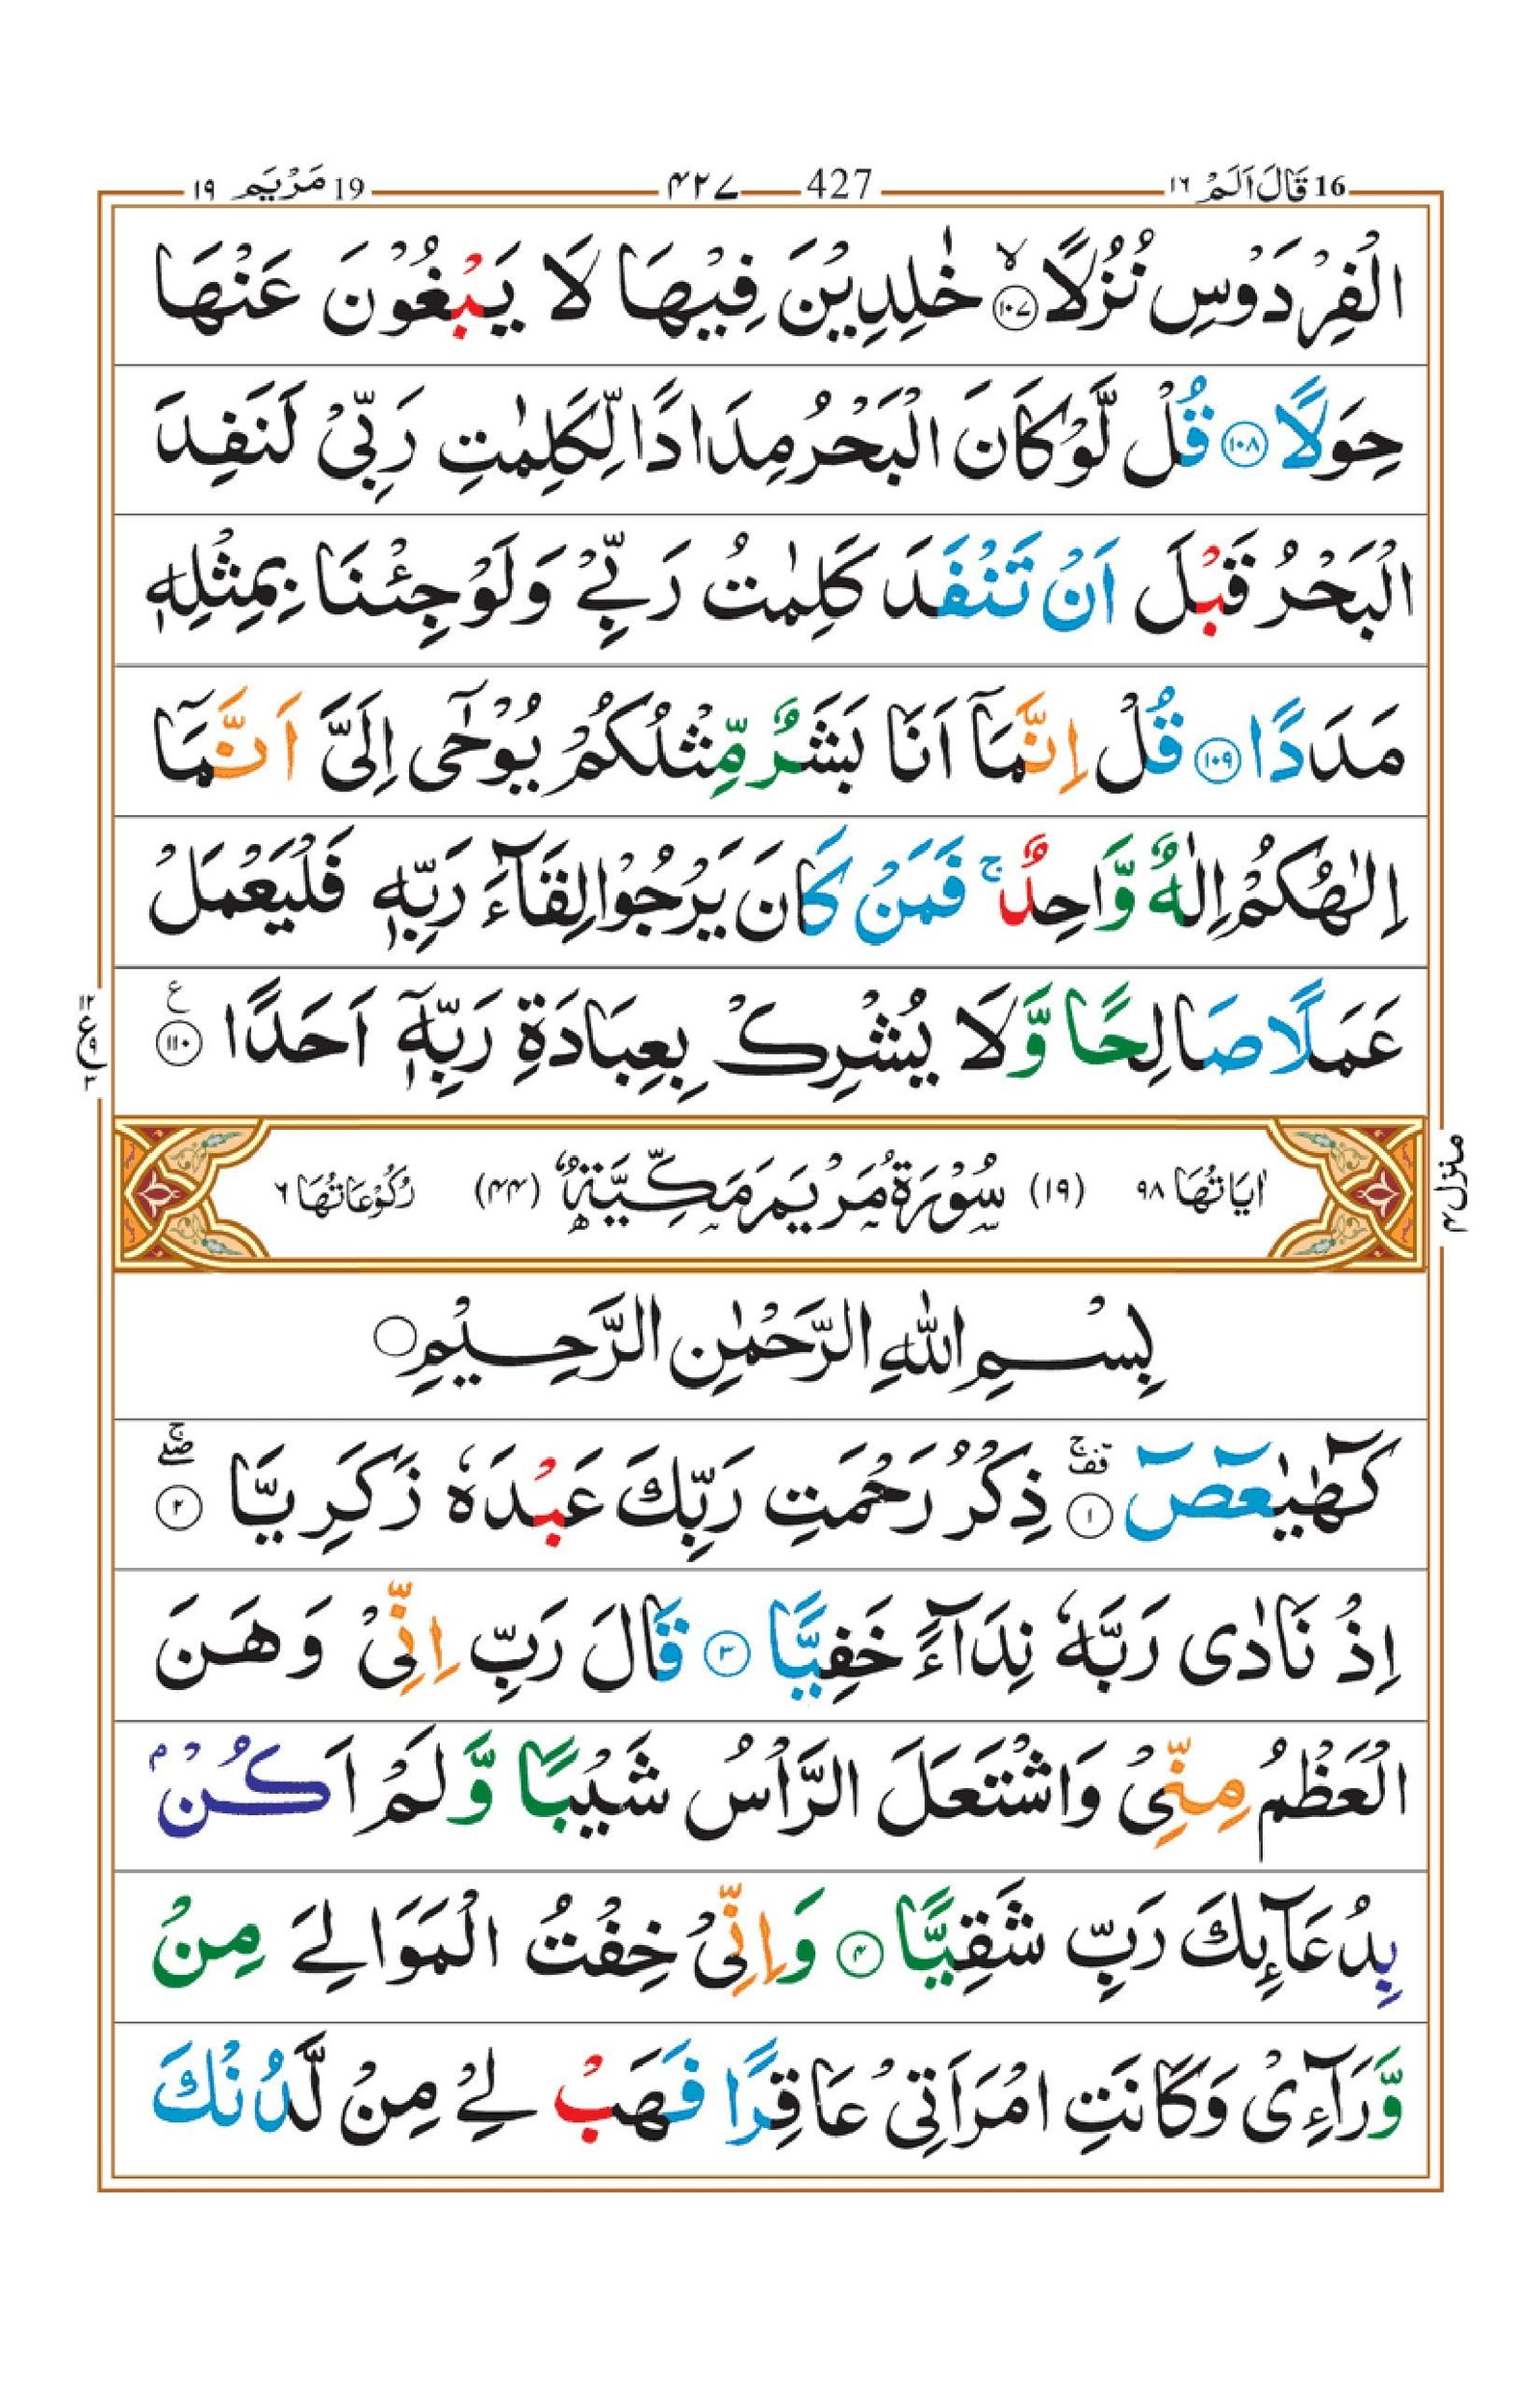 16 قَالَ اَلَمْ ١٦ 427 ٤٢٧ 19 مَرْيَم ١٩
الْفِرْدَوْسِ نُزُلًا ۙ‏ ﴿١٠٧﴾ خٰلِدِيْنَ فِيْهَا لَا يَبْغُوْنَ عَنْهَا
حِوَلًا ﴿١٠٨﴾ قُلْ لَّوْ كَانَ الْبَحْرُ مِدَادًا لِّكَلِمٰتِ رَبِّيْ لَنَفِدَ
الْبَحْرُ قَبْلَ اَنْ تَنْفَدَ كَلِمٰتُ رَبِّيْ وَلَوْ جِئْنَا بِمِثْلِهٖ
مَدَدًا ﴿١٠٩﴾ قُلْ اِنَّمَآ اَنَا بَشَرٌ مِّثْلُكُمْ يُوْحٰٓى اِلَيَّ اَنَّمَآ
اِلٰهُكُمْ اِلٰهٌ وَّاحِدٌ ۚ فَمَنْ كَانَ يَرْجُوْا لِقَآءَ رَبِّهٖ فَلْيَعْمَلْ
عَمَلًا صَالِحًا وَّلَا يُشْرِكْ بِعِبَادَةِ رَبِّهٖٓ اَحَدًا ﴿١١٠﴾ ع
١٢ ع ٩ ٣
اٰيَاتُهَا ٩٨ (١٩) سُوْرَةُ مَرْيَمَ مَكِّيَّةٌ (٤٤) رُكُوْعَاتُهَا ٦
منزل ٤
بِسْمِ اللهِ الرَّحْمٰنِ الرَّحِيْمِ
كٓهٰيٰعٓصٓ ﴿١﴾ ذِكْرُ رَحْمَتِ رَبِّكَ عَبْدَهٗ زَكَرِيَّا ﴿٢﴾
اِذْ نَادٰى رَبَّهٗ نِدَآءً خَفِيًّا ﴿٣﴾ قَالَ رَبِّ اِنِّيْ وَهَنَ
الْعَظْمُ مِنِّيْ وَاشْتَعَلَ الرَّاْسُ شَيْبًا وَّلَمْ اَكُنْۢ
بِدُعَآئِكَ رَبِّ شَقِيًّا ﴿٤﴾ وَاِنِّيْ خِفْتُ الْمَوَالِيَ مِنْ
وَّرَآءِيْ وَكَانَتِ امْرَاَتِيْ عَاقِرًا فَهَبْ لِيْ مِنْ لَّدُنْكَ